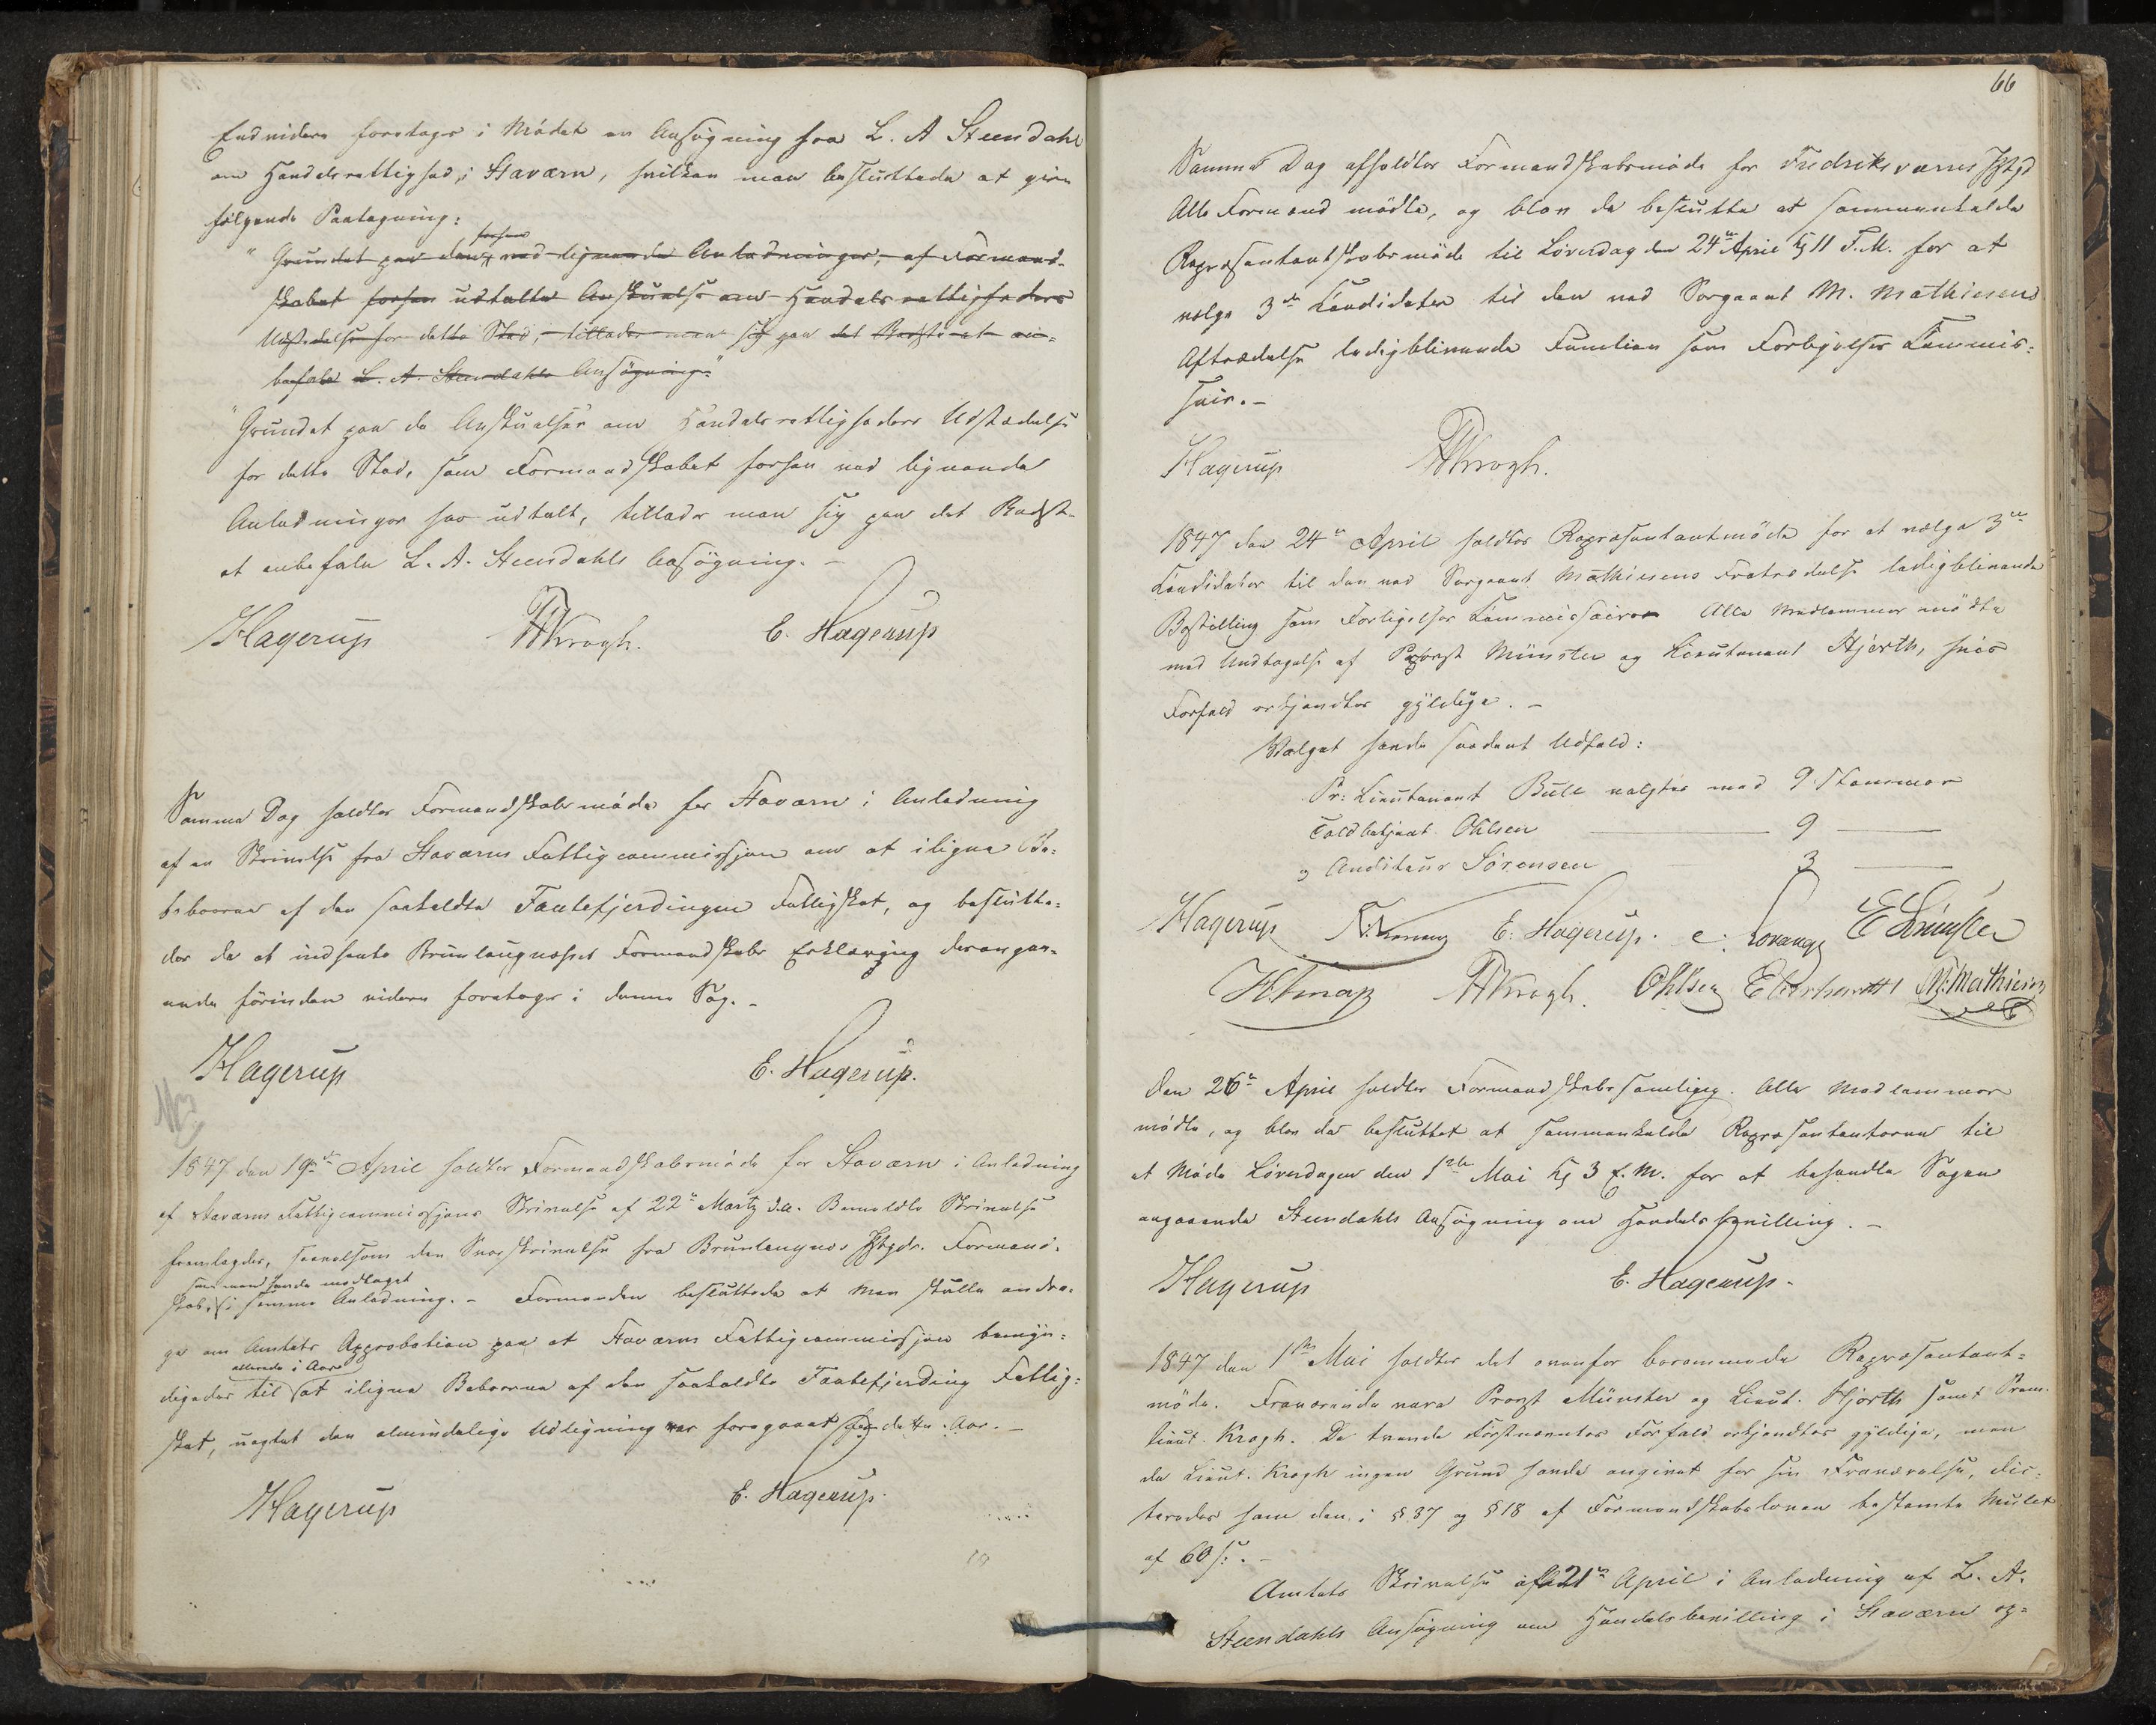 Endvidere foretoges i Mödet en Ansögning fra L. A Steendahl
om Handelsrettighed i Staværn, hvilken man besluttede at give
følgende Paategning:
forhen
"Grundet paa den, ved lignende Anledninger, af Formand-
skabet forhen udtalte Anskuelse om Handelsrettigheders
Udstedelse for dette Sted, tillader man sig paa det Bedste at an-
befale L. A. Steendahls Ansögning."
"Grundet paa de Anskuelser om Handelsrettigheders Udstædelse
for dette Sted, som Formandskabet forhen ved lignende
Anledninger har udtalt, tillader man sig paa det Bedste
at anbefale L. A. Steendahls Ansögning. -
Hagerup Krogh. E. Hagerup
Samme Dag holdtes Formandskabsmöde for Staværn i Anledning
af en Skrivelse fra Staværns Fattigcommission om at iligne Be-
beboerne af den saakaldte Tantefjerdingen Fattigskat, og beslutte-
des da at indhente Brunlaugnæsset Formandskabs Erklæring derangaa-
ende förinden videre foretoges i denne Sag. -
Hagerup E. Hagerup.
1847 den 19de April holdtes Formandskabsmöde for Staværn i Anledning
af Staværns Fattigcommissions Skrivelse af 22de Martz d.A. Bemeldte Skrivelse
fremlagdes, saavelsom den Svarskrivelse fra Brunlaugnæs Hgds. Formand-
som man havde modtaget
skab, i samme Anledning. - Formanden besluttede at man skulle andra-
ge om Amtets Approbation paa at Staværns Fattigcommission bemyn-
allerede i Aar
digedes til at iligne Beboerne af den saakaldte Tantefjerding Fattig-
skat, uagtet den almindelige Udligning var foregaaet for dette Aar. -
Hagerup E. Hagerup.
66
Samme Dag afholdtes Formandskabsmöde for Fredriksværns
Alle Formænd mödte, og blev da besluttet at sammenkalde
Repræsentantskabsmöde til Löverdag den 24de April Kl 11 F.M. for at
vælge 3de Candidater til den ved Sergeant M. Mathiesens
Aftrædelse ledigblivende Function som Forligelses Commis-
sair. -
Hagerup Krogh.
1847 den 24de April holdtes Repræsentantmöde for at vælge 3de
Candidater til den ved Sergeant Mathiesens Fratrædelse ledigblivende
Bestilling som Forligelses Commissair. Alle Medlemmer mödte
med Undtagelse af Provst Münster og Lieutenant Hjorth, hvis
Forfald erkjendtes gyldige. -
Valget havde saadant Udfald:
Pr: Lieutenant Bull valgtes med 9 Stemmer
Toldbetjent Ohlsen — 9 —
og Auditeur Sörensen — 3 —
Hagerup E. Hagerup. E Münster
Krogh. Ohlsen Eberhardt M. Mathiesen
Den 26de April holdtes Formandskabssamling. Alle Medlemmer
mödte, og blev da besluttet at sammenkalde Repræsentanterne til
et Möde Löverdagen den 1ste Mai Kl 3 E.M. for at behandle Sagen
angaaende Steendahls Ansögning om Handelsbevilling. -
Hagerup E. Hagerup.
1847 den 1ste Mai holdtes det ovenfor berammede Repræsentant-
möde. Fraværende vare Provst Münster og Lieut. Hjorth samt Prem.
Lieut. Krogh. De tvende Förstnævntes Forfald erkjendtes gyldige, men
da Lieut. Krogh ingen Grund havde angivet for sin Fraværelse, dic-
teredes ham den i § 37 og § 18 af Formandskabsloven bestemte Mulct
af 60 s. -
Amtets Skrivelse af 21de April i Anledning af L. A.
Steendahls Ansögning om Handelsbevilling i Staværn op-